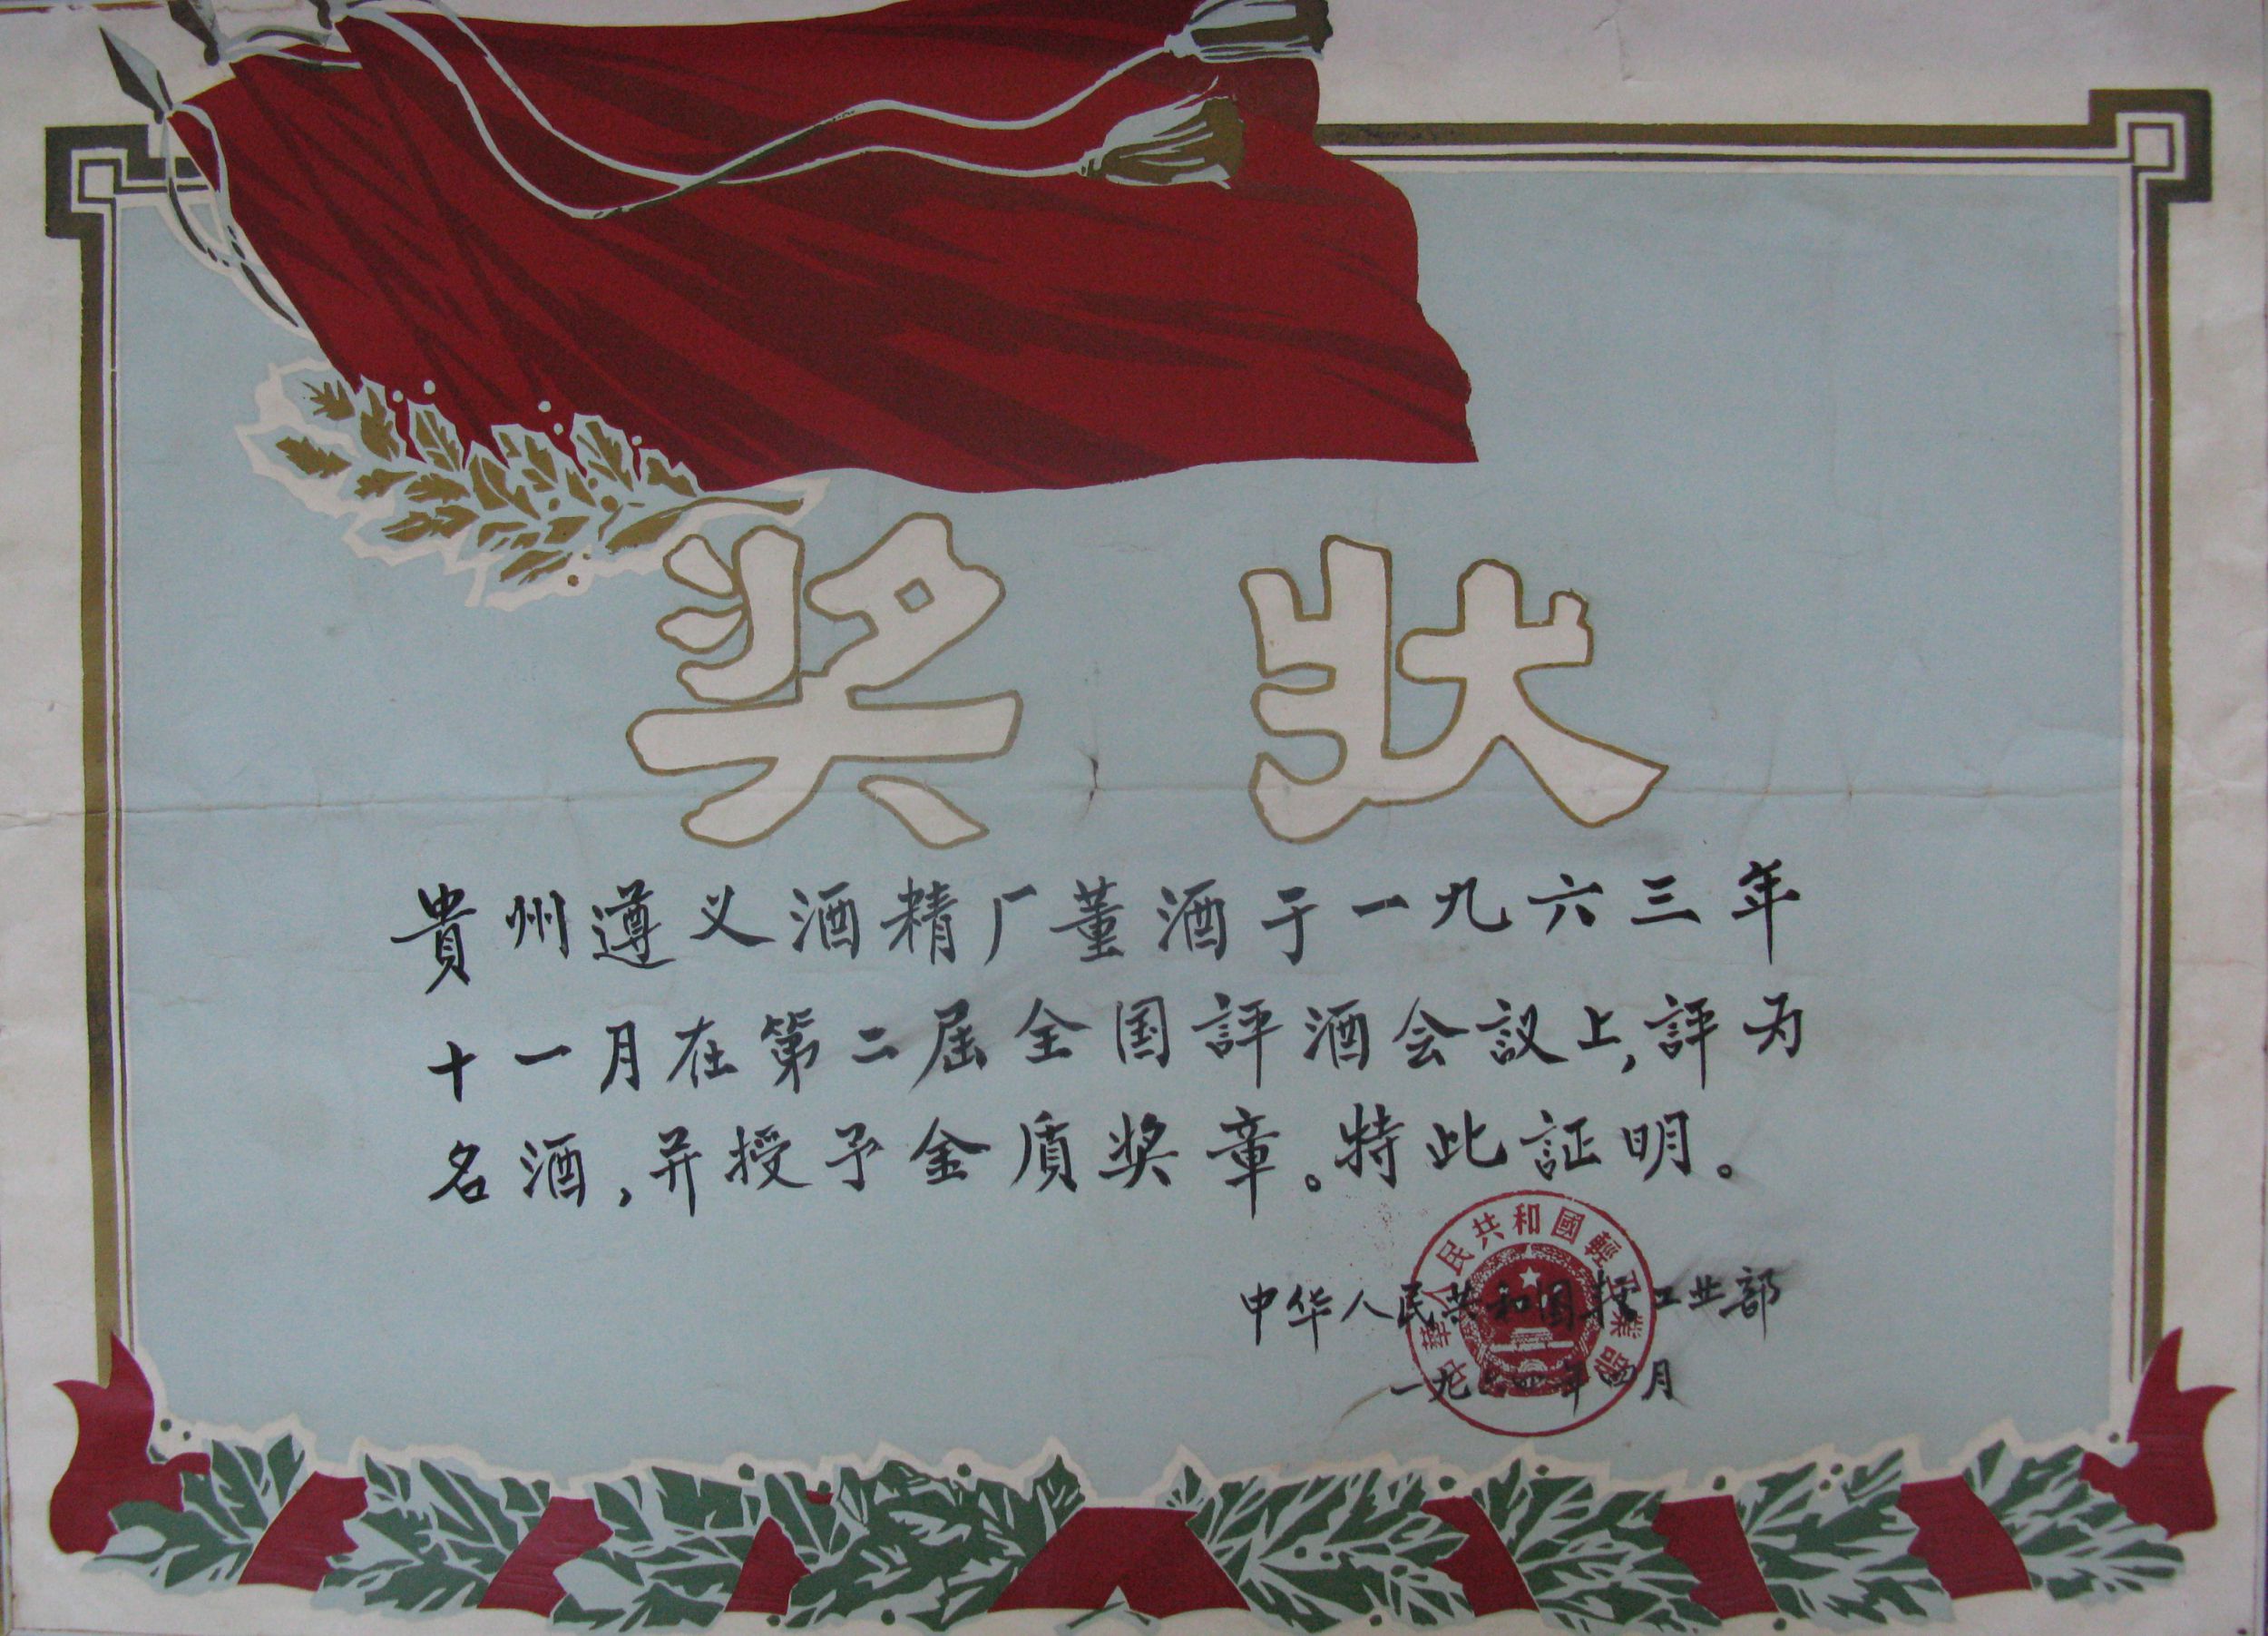 奖状
貴州遵义酒精厂董酒于一九六三年
十一月在第二届全国評酒会议上,評为
名酒,并授予金质奖章。特此証明。
中华人民共和国轻工业部
一九六四年四月
中華人民共和國輕工業部